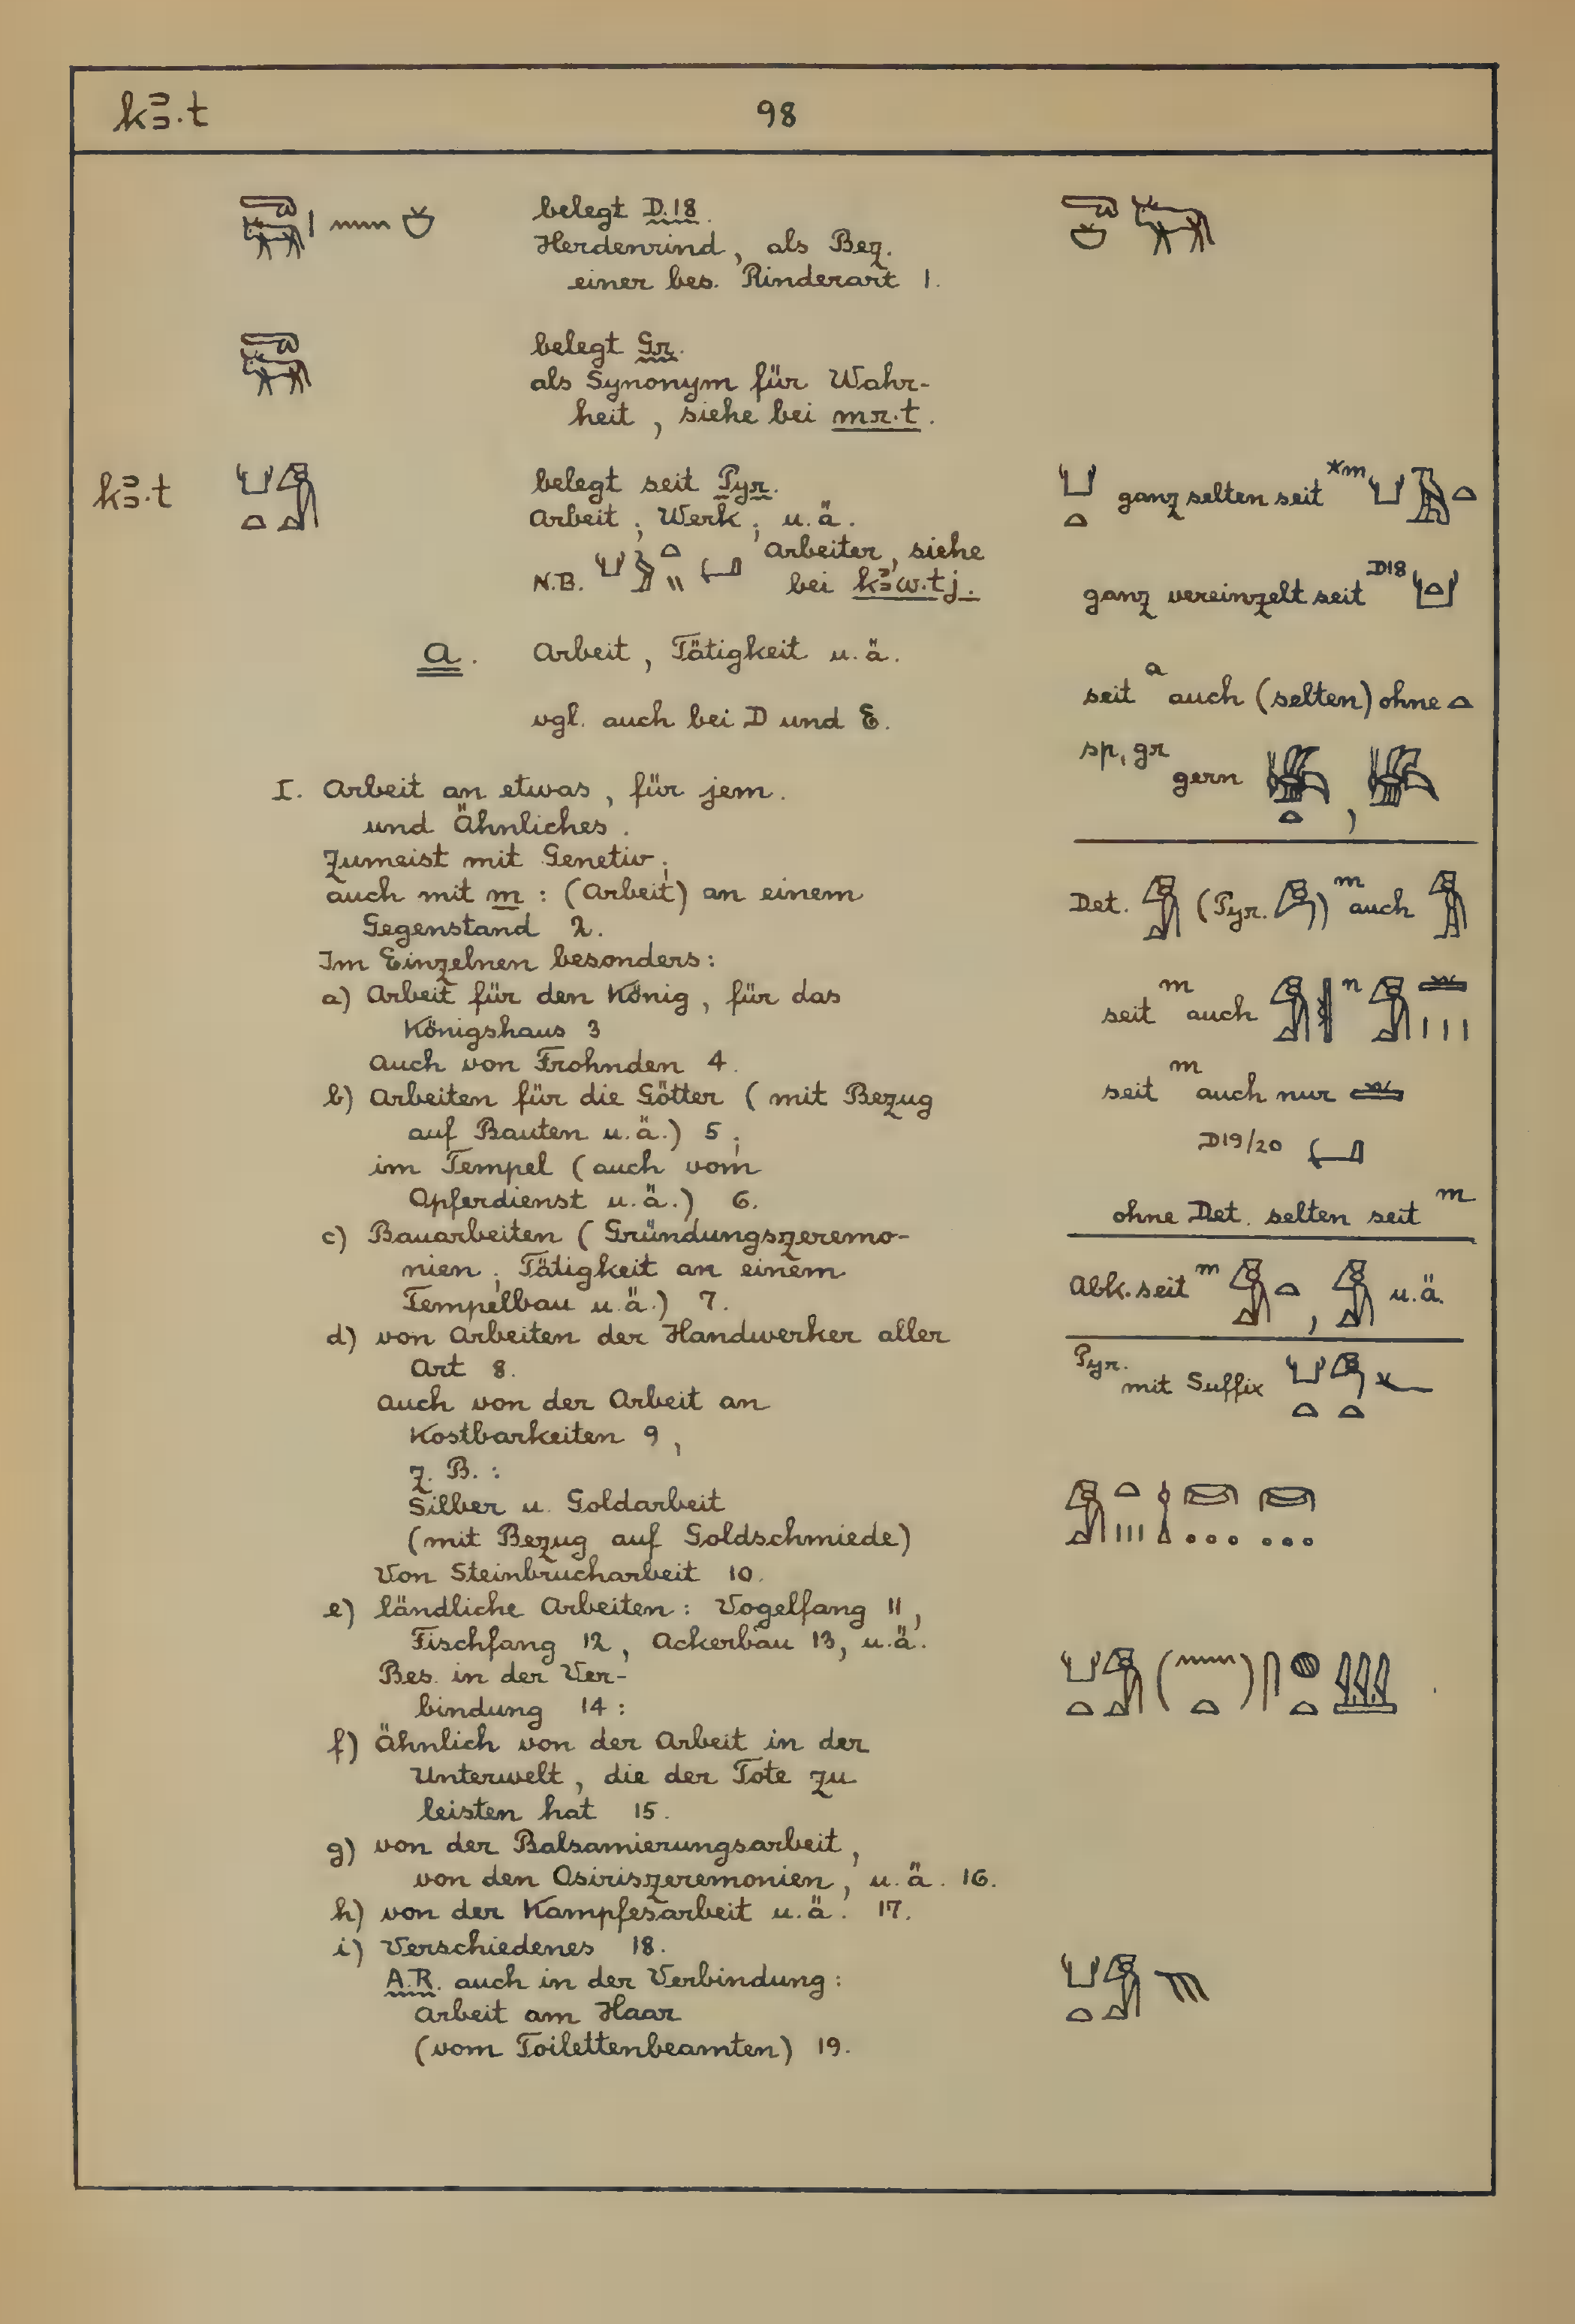 kꜣ.t 98
belegt D.18.
Herdenrind, als Bez.
einer bes. Rinderart 1.
belegt Gr.
als Synonym für Wahr-
heit, siehe bei mr.t.
kꜣ.t
belegt seit Pyr.
Arbeit; Werk; u.ä.
N.B. Arbeiter, siehe
bei kꜣw.tj.
A. Arbeit, Tätigkeit u.ä.
vgl. auch bei D und E.
I. Arbeit an etwas, für jem.
und Ähnliches.
Zumeist mit Genetiv;
auch mit m: (Arbeit) an einem
Gegenstand 2.
Im Einzelnen besonders:
a) Arbeit für den König, für das
Königshaus 3
auch von Frohnden 4.
b) Arbeiten für die Götter (mit Bezug
auf Bauten u.ä.) 5;
im Tempel (auch vom
Opferdienst u.ä.) 6.
c) Bauarbeiten (Gründungszeremo-
nien; Tätigkeit an einem
Tempelbau u.ä.) 7.
d) von Arbeiten der Handwerker aller
Art 8.
Auch von der Arbeit an
Kostbarkeiten 9,
z. B.:
Silber u. Goldarbeit
(mit Bezug auf Goldschmiede)
Von Steinbrucharbeit 10.
e) ländliche Arbeiten: Vogelfang 11,
Fischfang 12, Ackerbau 13, u.ä.
Bes. in der Ver-
bindung 14:
f) Ähnlich von der Arbeit in der
Unterwelt, die der Tote zu
leisten hat 15.
g) von der Balsamierungsarbeit,
von den Osiriszeremonien, u.ä. 16.
h) von der Kampfesarbeit u.ä. 17.
i) Verschiedenes 18.
A.R. auch in der Verbindung:
Arbeit am Haar
(vom Toilettenbeamten) 19.
ganz selten seit *m
ganz vereinzelt seit D18
seit a auch (selten) ohne
sp, gr gern
Det. (Pyr. ) m auch
seit m auch n
seit m auch nur
D19/20
ohne Det. selten seit m
Abk. seit m , u.ä.
Pyr. mit Suffix